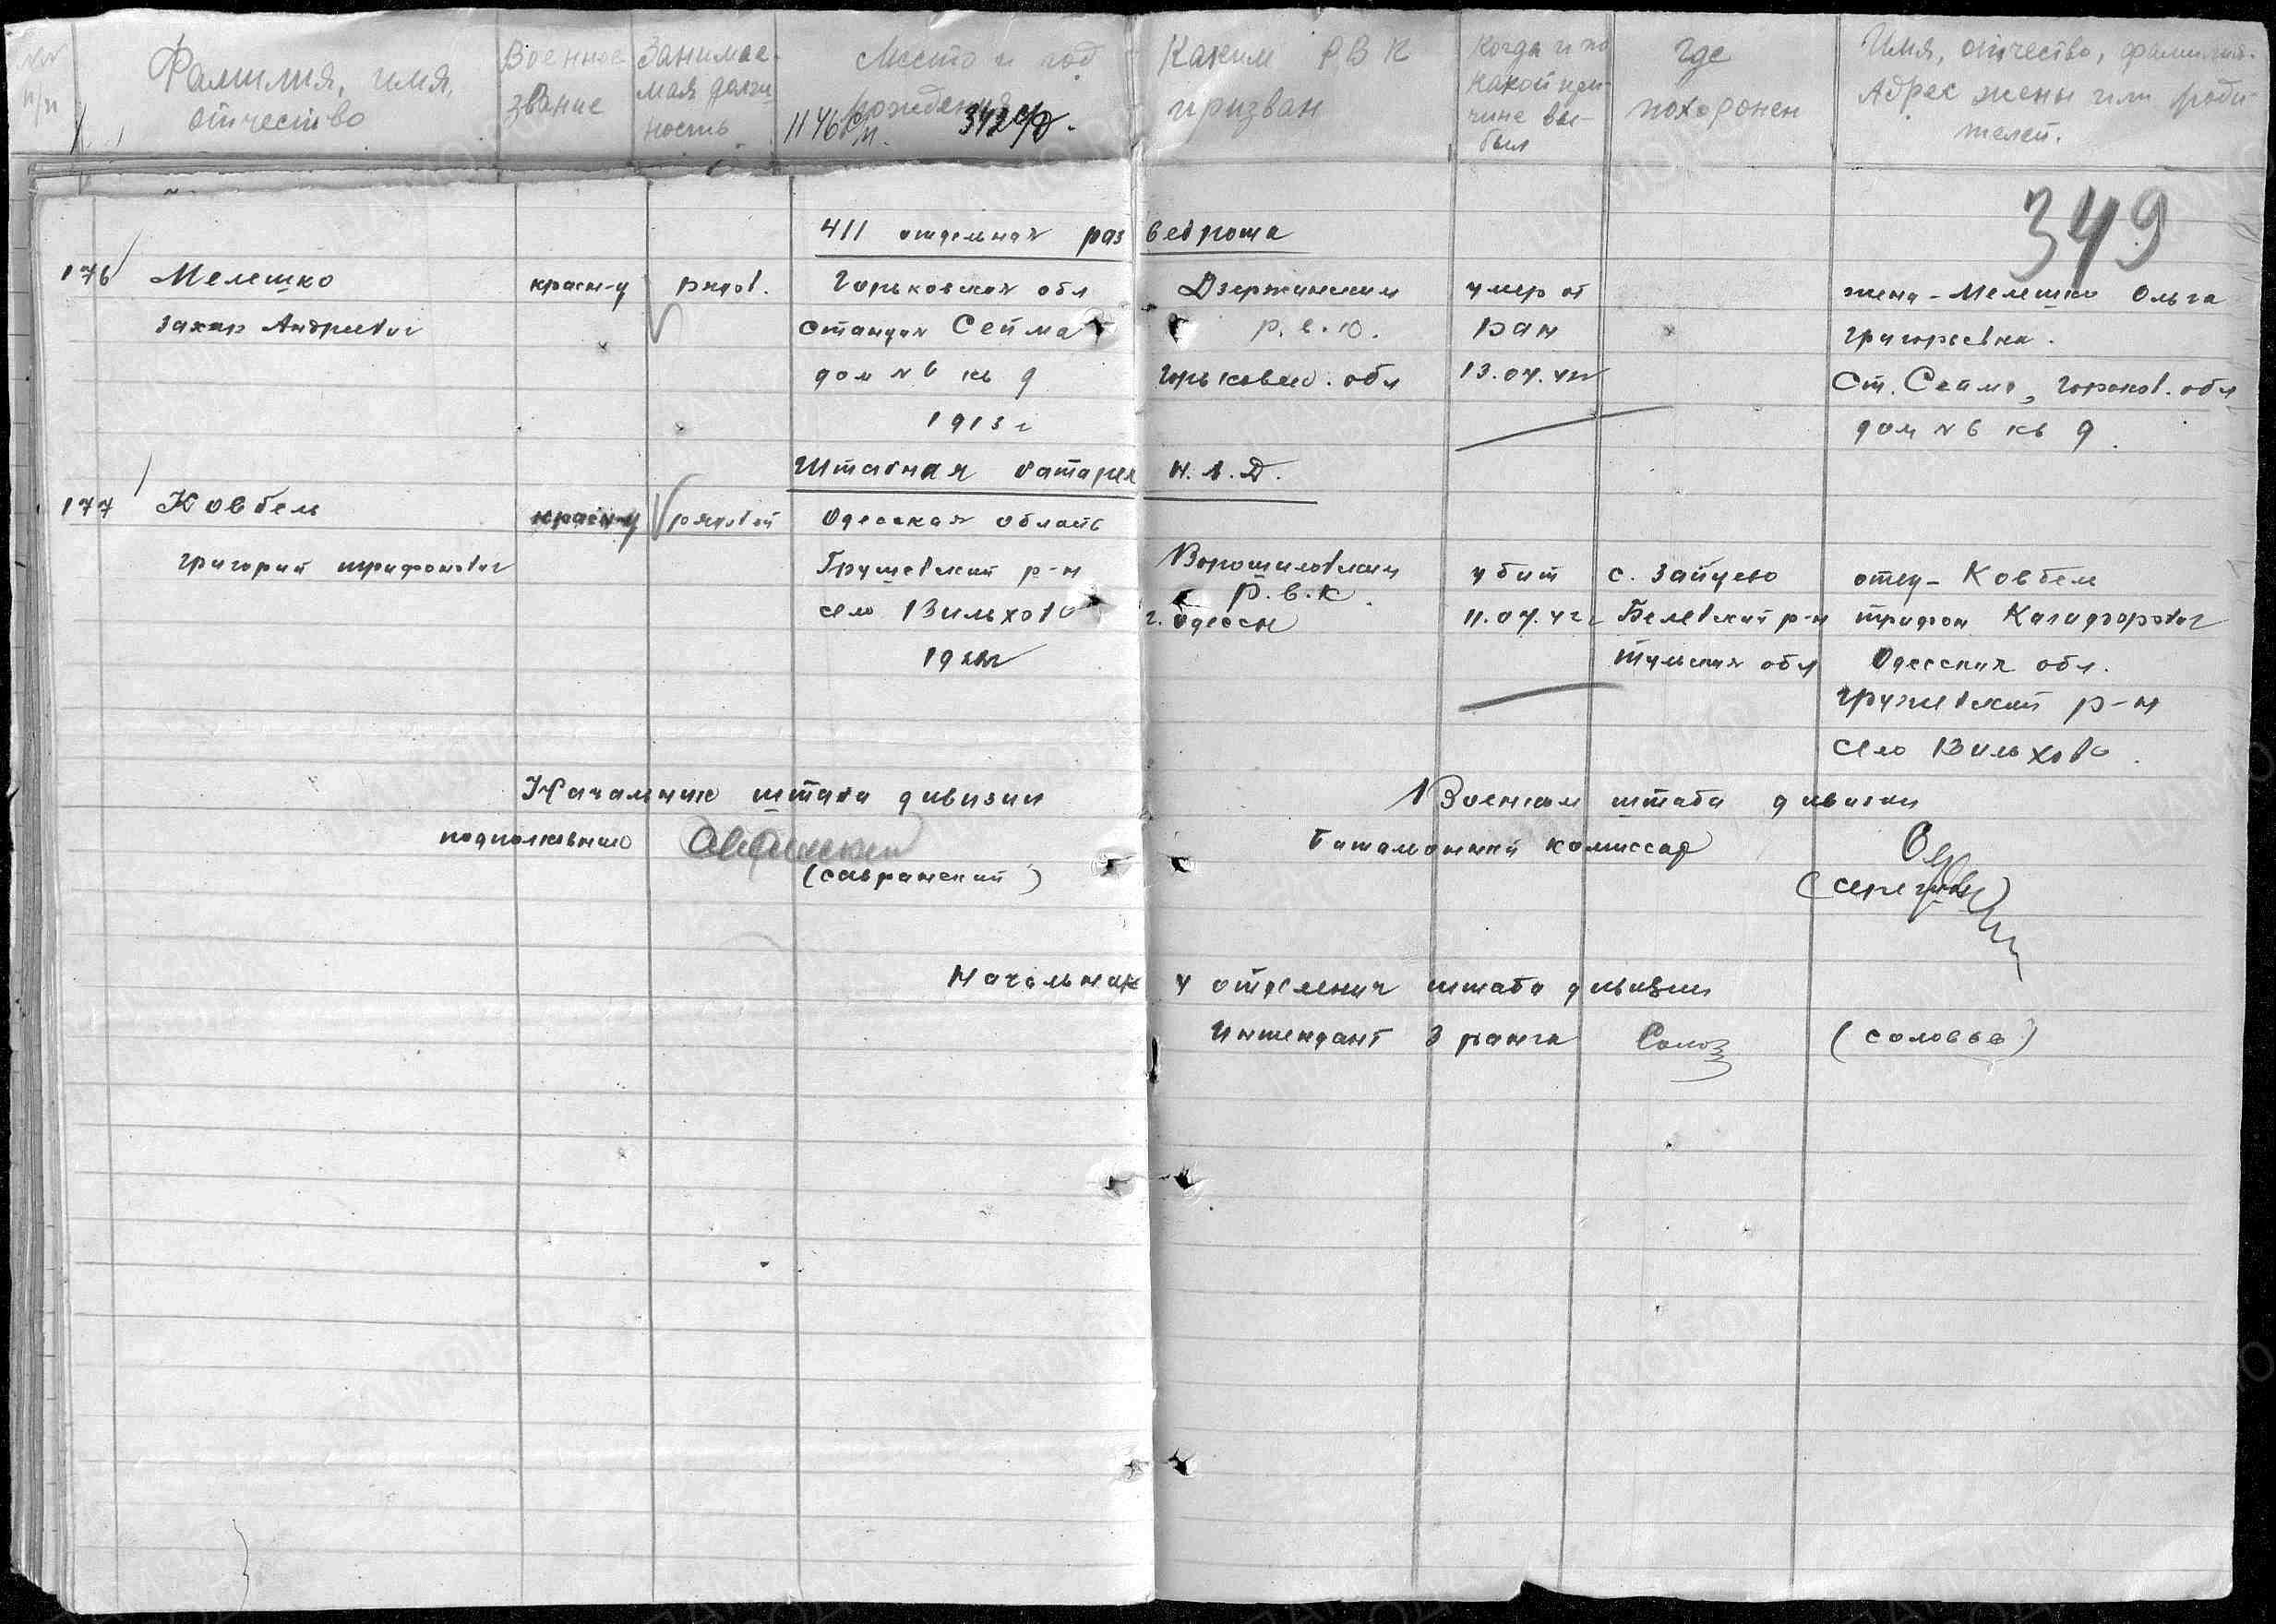 №№ п/п
Фамилия, имя, отчество
Военное звание
Занимаемая должность
Место и год рождения
1146 с/п. 342 с/д.
Каким РВК призван
Когда и по какой причине выбыл
где похоронен
Имя, отчество, фамилия. Адрес жены или родителей.
349
411 отдельная разведрота
176 Мелешко красн-ц рядов. Горьковская обл Дзержинским умер от жена - Мелешко Ольга
Захар Андреевич станция Сейма р.в.к. ран Григорьевна.
дом №6 кв 9 Горьковск. обл 13.04.42г Ст. Сейма, Горьков. обл
1913 г дом №6 кв 9.
Штабная батарея н.а.д.
177 Ковбель красн-ц рядовой Одесская область
Григорий Трифонович Грушевский р-н Ворошиловским убит с. Зайцево отец - Ковбель
село Вильхово р.в.к. г. Одессы 11.04.42г Белевский р-н Трифон
Тульская обл Одесская обл.
Грушевский р-н
село Вильхово.
Начальник штаба дивизии Военком штаба дивизии
подполковник Батальонный комиссар
(Савранский) (Серегин)
Начальник 4 отделения штаба дивизии
Интендант 3 ранга (Соловьев)